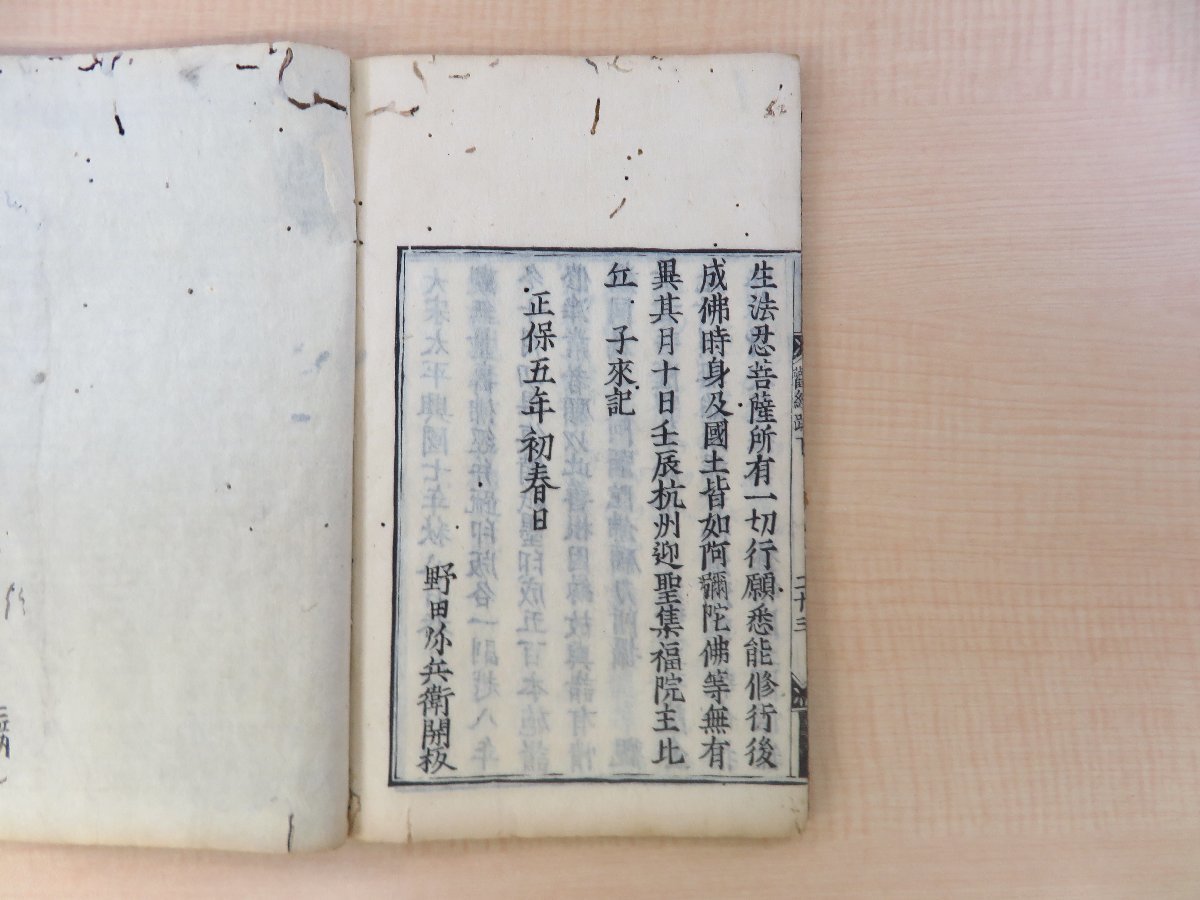 生法忍菩薩所有一切行願悉能修行後
成佛時身及國土皆如阿彌陀佛等無有
異其月十日壬辰杭州迎聖集福院主比
丘 子來記
正保五年初春日
野田弥兵衛開板